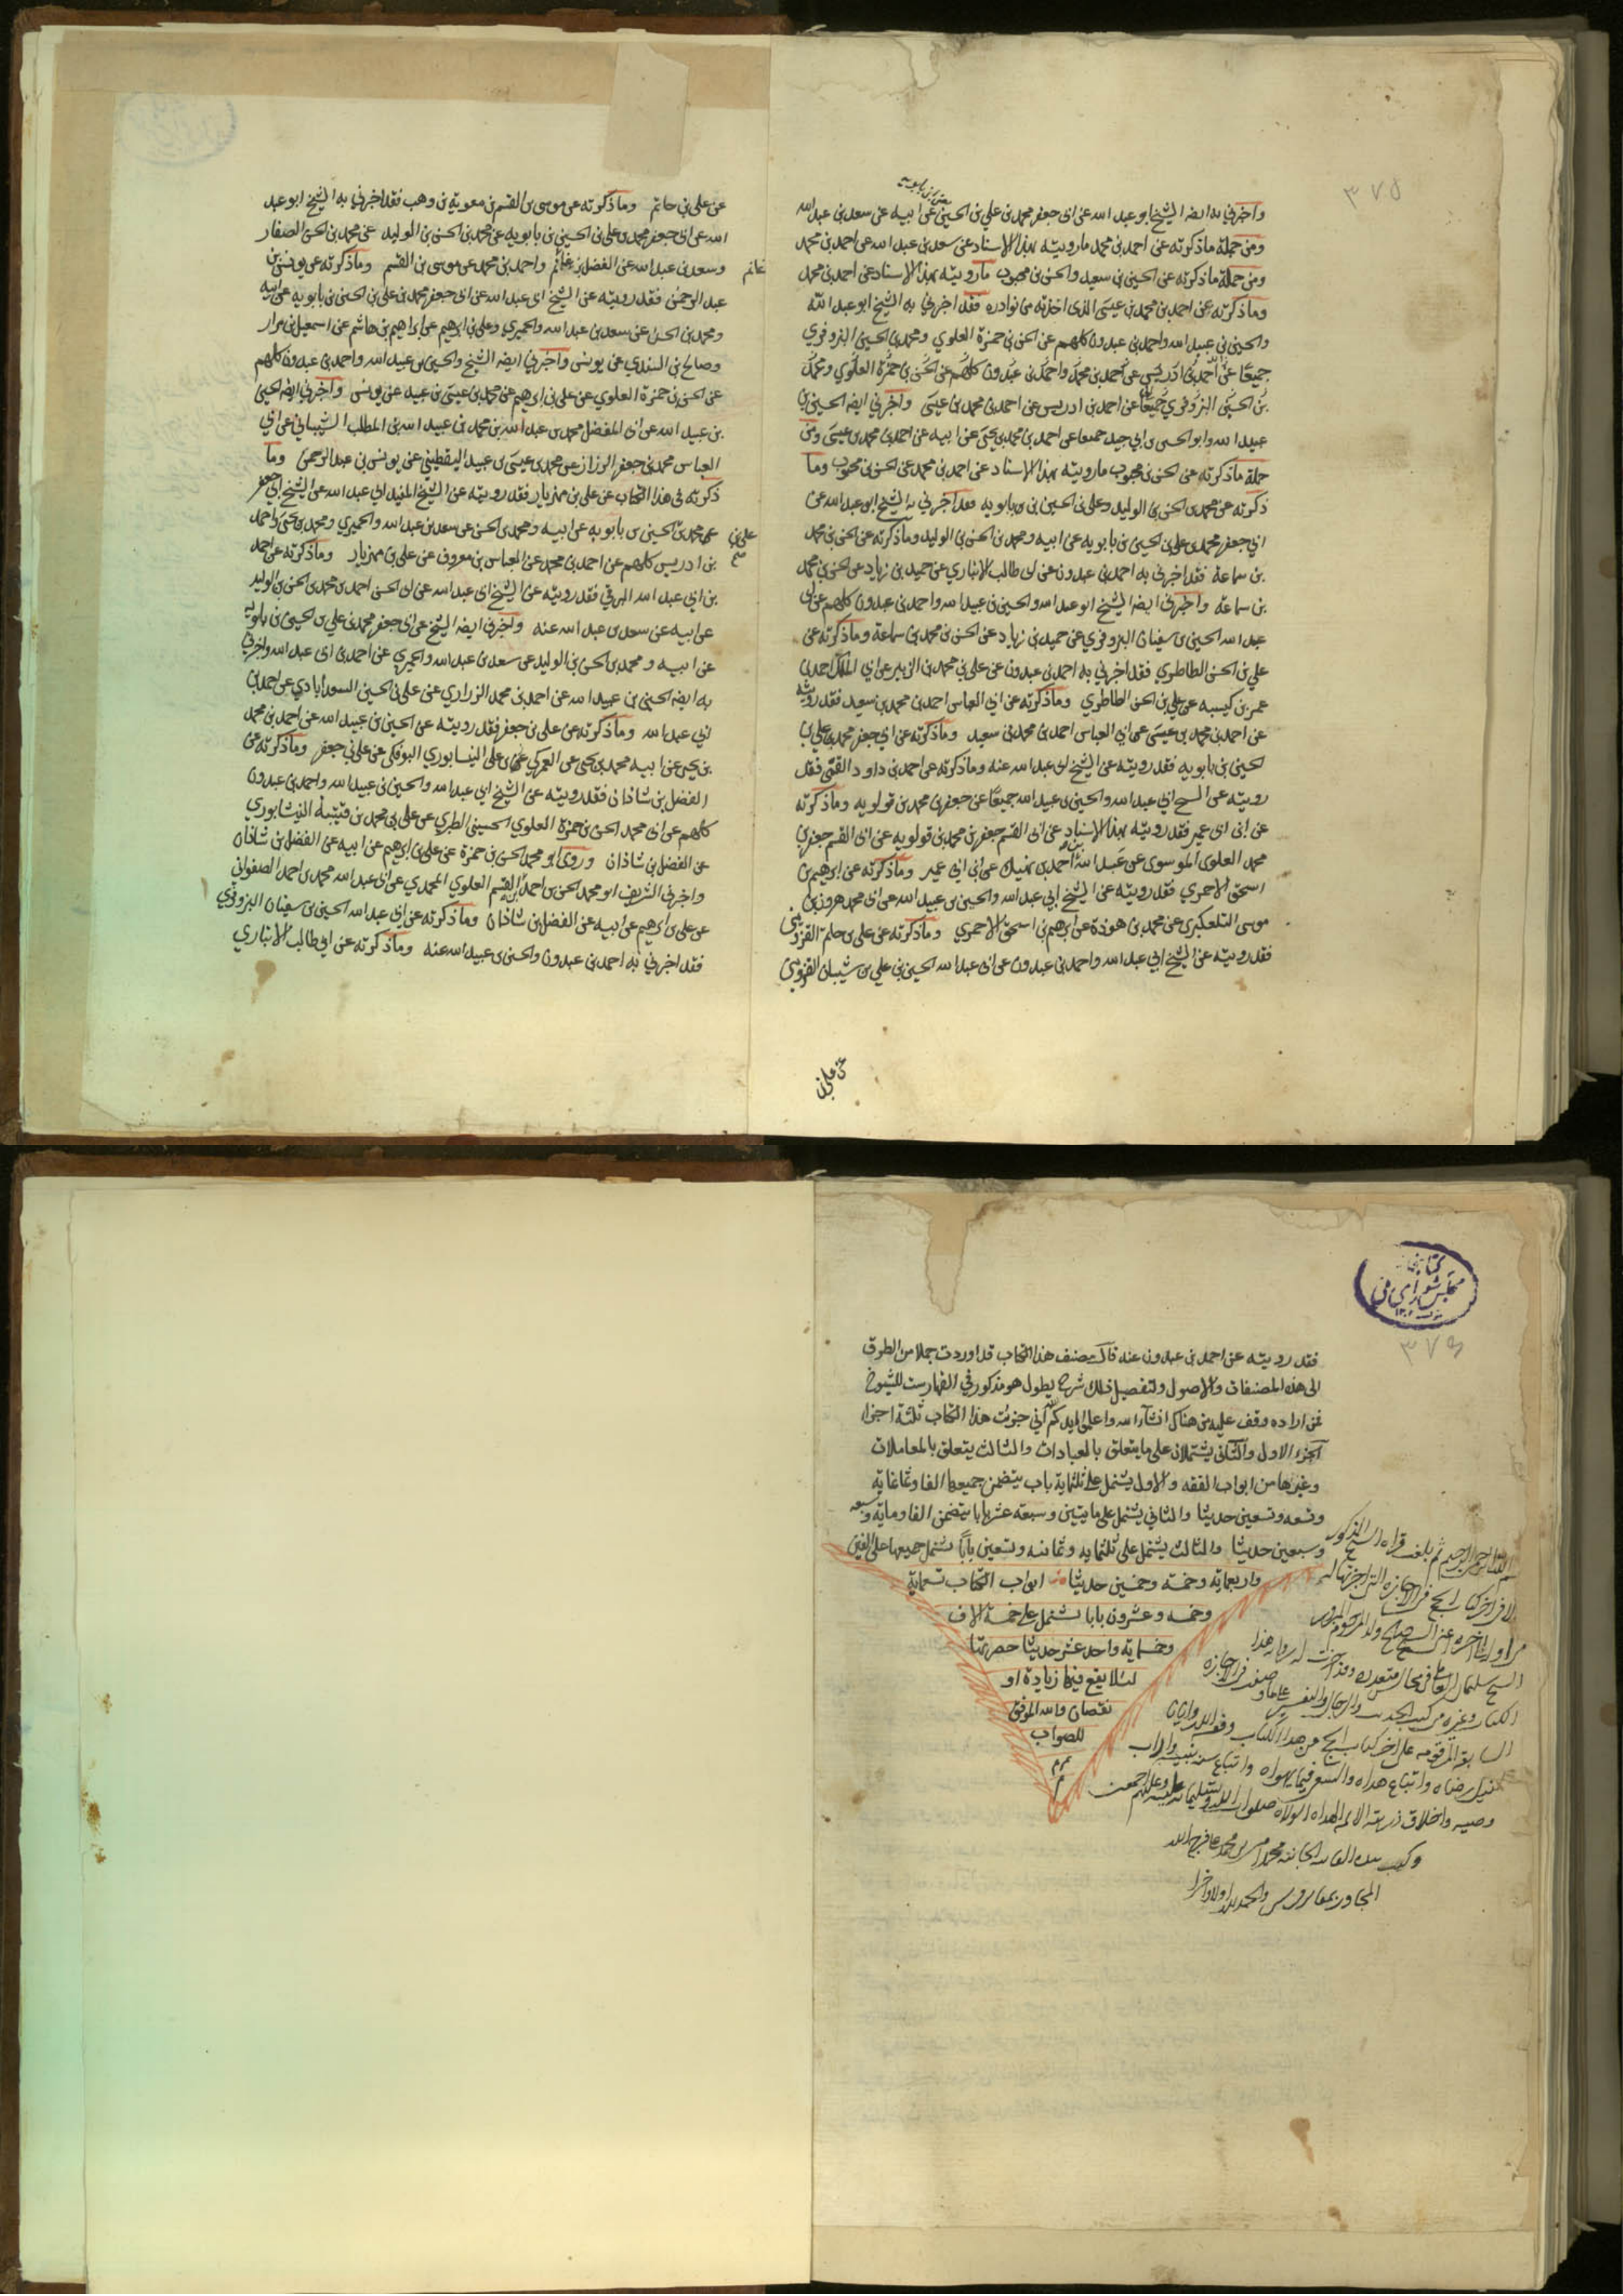 ٣٧٥
واخبرني به ايضا الشيخ ابو عبد الله عن ابي جعفر محمد بن علي بن الحسين عن ابيه عن سعد بن عبد الله
ومن جملة ما ذكرته عن احمد بن محمد ما رويته بهذا الاسناد عن سعد بن عبد الله عن احمد بن محمد
ومن جملة ما ذكرته عن الحسين بن سعيد والحسن بن محبوب ما رويته بهذا الاسناد عن احمد بن محمد
وما ذكرته عن احمد بن محمد بن عيسى الذي اخذته من نوادره فقد اخبرني به الشيخ ابو عبد الله
والحسين بن عبيد الله واحمد بن عبدون كلهم عن الحسن بن حمزة العلوي ومحمد بن الحسين البزوفري
جميعا عن احمد بن ادريس عن احمد بن محمد واحمد بن عبدون كلهم عن الحسن بن حمزة العلوي ومحمد
بن الحسين البزوفري جميعا عن احمد بن ادريس عن احمد بن محمد بن عيسى واخبرني ايضا الحسين بن
عبيد الله وابو الحسين بن ابي جيد جميعا عن احمد بن محمد بن يحيى عن ابيه عن احمد بن محمد بن عيسى ومن
جملة ما ذكرته عن الحسن بن محبوب ما رويته بهذا الاسناد عن احمد بن محمد عن الحسن بن محبوب وما
ذكرته عن محمد بن الحسن بن الوليد وعلي بن الحسين بن بابويه فقد اخبرني به الشيخ ابو عبد الله عن
ابي جعفر محمد بن علي بن الحسين بن بابويه عن ابيه ومحمد بن الحسن بن الوليد وما ذكرته عن الحسن بن محمد
بن سماعة فقد اخبرني به احمد بن عبدون عن ابي طالب الانباري عن حميد بن زياد عن الحسن بن محمد
بن سماعة واخبرني ايضا الشيخ ابو عبد الله والحسين بن عبيد الله واحمد بن عبدون كلهم عن ابي
عبد الله الحسين بن سفيان البزوفري عن حميد بن زياد عن الحسن بن محمد بن سماعة وما ذكرته عن
علي بن الحسن الطاطري فقد اخبرني به احمد بن عبدون عن علي بن محمد بن الزبير عن ابي الملك احمد بن
عمر بن كيسبه عن علي بن الحسن الطاطري وما ذكرته عن ابي العباس احمد بن محمد بن سعيد فقد رويته
عن احمد بن محمد بن عيسى عن ابي العباس احمد بن محمد بن سعيد وما ذكرته عن ابي جعفر محمد بن علي بن
الحسين بن بابويه فقد رويته عن الشيخ ابي عبد الله عنه وما ذكرته عن احمد بن داود القمي فقد
رويته عن الشيخ ابي عبد الله والحسين بن عبيد الله جميعا عن جعفر بن محمد بن قولويه وما ذكرته
عن ابن ابي عمير فقد رويته بهذا الاسناد عن ابي القسم جعفر بن محمد بن قولويه عن ابي القسم جعفر بن
محمد العلوي الموسوي عن عبيد الله بن احمد بن نهيك عن ابن ابي عمير وما ذكرته عن ابرهيم بن
اسحق الاحمري فقد رويته عن الشيخ ابي عبد الله والحسين بن عبيد الله عن ابي محمد هرون بن
موسى التلعكبري عن محمد بن هوذة عن ابرهيم بن اسحق الاحمري وما ذكرته عن علي بن حاتم القزويني
فقد رويته عن الشيخ ابي عبد الله واحمد بن عبدون عن ابي عبد الله الحسين بن علي بن شيبان القزويني
عن علي بن
عن علي بن حاتم وما ذكرته عن موسى بن القسم بن معوية بن وهب فقد اخبرني به الشيخ ابو عبد
الله عن ابي جعفر محمد بن علي بن الحسين بن بابويه عن محمد بن الحسن بن الوليد عن محمد بن الحسن الصفار
وسعد بن عبد الله عن الفضل بن غانم واحمد بن محمد عن موسى بن القسم وما ذكرته عن يونس بن
غانم
عبد الرحمن فقد رويته عن الشيخ ابي عبد الله عن ابي جعفر محمد بن علي بن الحسين بن بابويه عن ابيه
ومحمد بن الحسن عن سعد بن عبد الله والحميري وعلي بن ابرهيم عن ابراهيم بن هاشم عن اسمعيل بن مرار
وصالح بن السندي عن يونس واخبرني ايضا الشيخ والحسين بن عبيد الله واحمد بن عبدون كلهم
عن الحسن بن حمزة العلوي عن علي بن ابرهيم عن محمد بن عيسى بن عبيد عن يونس واخبرني ايضا الحسين
بن عبيد الله عن ابي المفضل محمد بن عبد الله بن محمد بن عبيد الله بن المطلب الشيباني عن ابي
العباس محمد بن جعفر الرزاز عن محمد بن عيسى بن عبيد اليقطيني عن يونس بن عبد الرحمن وما
ذكرته في هذا الكتاب عن علي بن مهزيار فقد رويته عن الشيخ المفيد ابي عبد الله عن الشيخ ابي جعفر
عن محمد بن الحسين بن بابويه عن ابيه ومحمد بن الحسن عن سعد بن عبد الله والحميري ومحمد بن يحيى واحمد
علي بن صح
بن ادريس كلهم عن احمد بن محمد عن العباس بن معروف عن علي بن مهزيار وما ذكرته عن احمد
بن ابي عبد الله البرقي فقد رويته عن الشيخ ابي عبد الله عن ابي الحسن احمد بن محمد بن الحسن بن الوليد
عن ابيه عن سعد بن عبد الله عنه واخبرني ايضا الشيخ عن ابي جعفر محمد بن علي بن الحسين بن بابويه
عن ابيه ومحمد بن الحسن بن الوليد عن سعد بن عبد الله والحميري عن احمد بن ابي عبد الله واخبرني
به ايضا الحسين بن عبيد الله عن احمد بن محمد الزراري عن علي بن الحسين السعدابادي عن احمد بن
ابي عبد الله وما ذكرته عن علي بن جعفر فقد رويته عن الحسين بن عبيد الله عن احمد بن محمد
بن يحيى عن ابيه محمد بن يحيى عن العمركي بن علي النيسابوري البوفكي عن علي بن جعفر وما ذكرته عن
الفضل بن شاذان فقد رويته عن الشيخ ابي عبد الله والحسين بن عبيد الله واحمد بن عبدون
كلهم عن ابي محمد الحسن بن حمزة العلوي الحسيني الطبري عن علي بن محمد بن قتيبة النيشابوري
عن الفضل بن شاذان وروى ابو محمد الحسن بن حمزة عن علي بن ابرهيم عن ابيه عن الفضل بن شاذان
واخبرني الشريف ابو محمد الحسن بن احمد بن القسم العلوي المحمدي عن ابي عبد الله محمد بن احمد الصفواني
عن علي بن ابرهيم عن ابيه عن الفضل بن شاذان وما ذكرته عن ابي عبد الله الحسين بن سفيان البزوفري
فقد اخبرني به احمد بن عبدون والحسين بن عبيد الله عنه وما ذكرته عن ابي طالب الانباري
كتابخانه
مجلس شورای ملی
٣٧٦
فقد رويته عن احمد بن عبدون عنه قال مصنف هذا الكتاب قد اوردت جملا من الطرق
الى هذه المصنفات والاصول ولتفصيل ذلك شرح يطول هو مذكور في الفهارست للشيوخ
فمن اراده وقف عليه من هناك ان شاء الله واعلم ايدكم الله اني جزيت هذا الكتاب ثلثة اجزا
الجزء الاول والثاني يشتملان على ما يتعلق بالعبادات والثالث يتعلق بالمعاملات
وغيرها من ابواب الفقه والاول يشتمل على ثلثماية باب يتضمن جميعها الفا وثمانماية
وتسعه وتسعين حديثا والثاني يشتمل على مايتين وسبعة عشر بابا يتضمن الفا وماية وسبعه
وسبعين حديثا والثالث يشتمل على ثلثمايه وثمانيه وتسعين بابا يشتمل جميعها على الفين
واربعمايه وخمسة وخمسين حديثا ابواب الكتاب تسعماية
وخمسه وعشرون بابا يشتمل على خمسة الاف
وخمسماية واحد عشر حديثا حصرتها
لئلا يقع فيها زيادة او
نقصان والله الموفق
للصواب
بسم الله الرحمن الرحيم ثم بلغت قراءة الشيخ المذكور
الكتاب وغيره من كتب الحديث والرجال والتفسير
السابقة المرقومه على اخر كتاب الحج من هذا الكتاب وفقه الله وايانا
لنيل رضاه واتباع هداه واتباع سنه نبيه
وصيه واخلاق ذريته الائمه الهداه الولاه صلوات الله وتسليماته عليه وعليهم اجمعين
وكتب بيده الفانيه الجانيه محمد
والحمد لله اولا واخرا